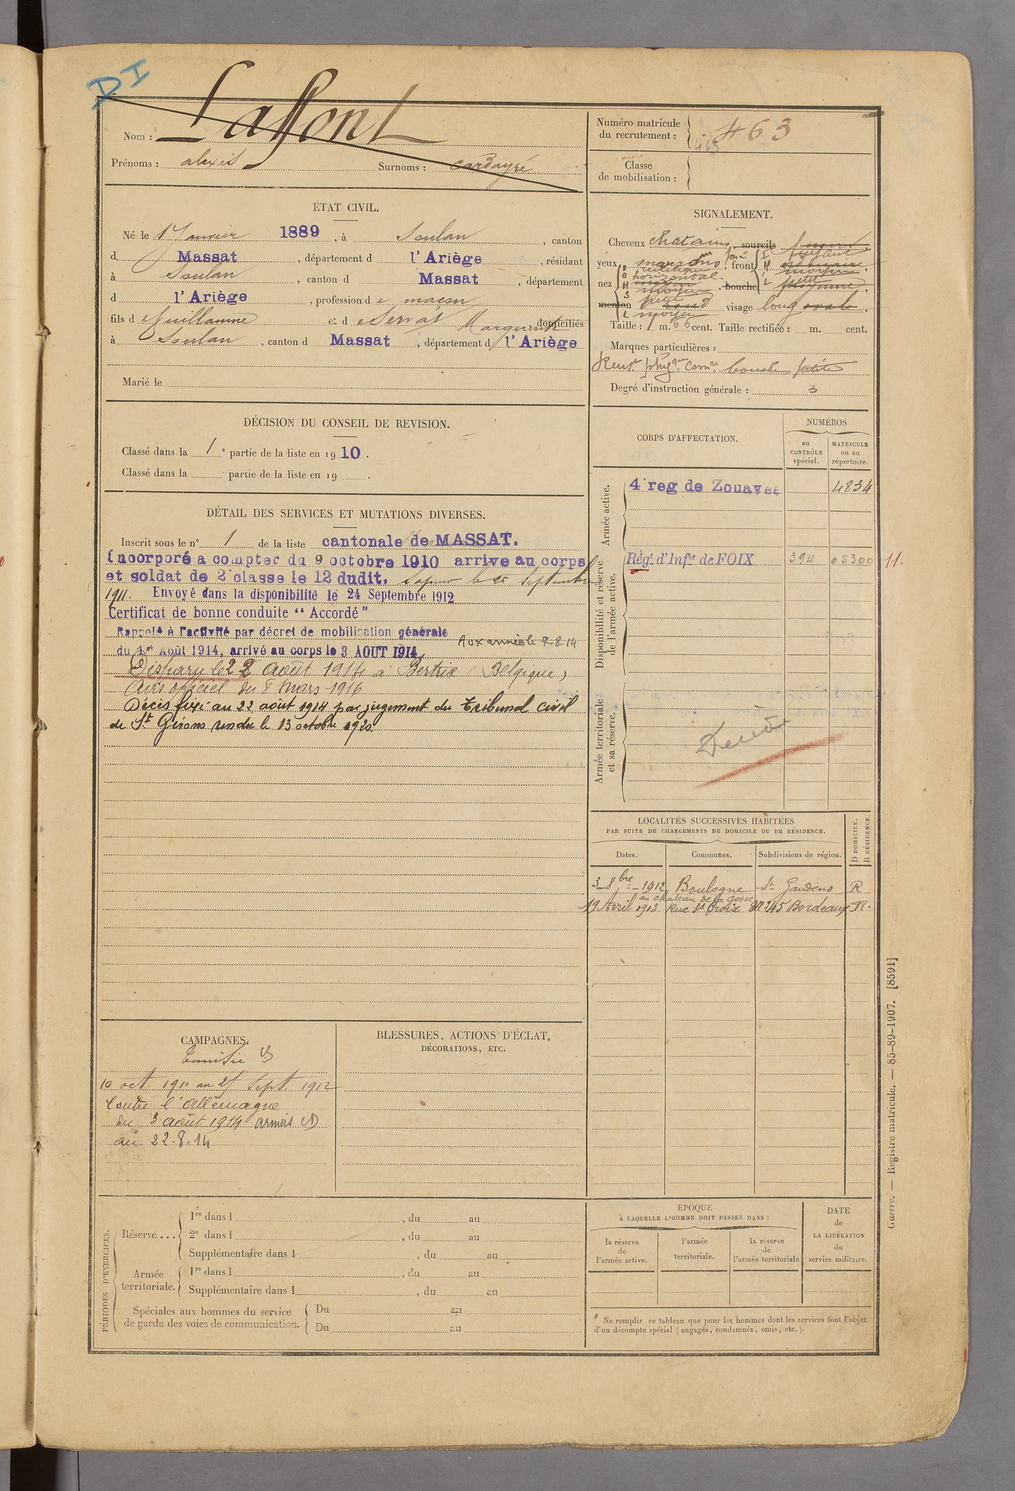 DI
Nom : Laffont
Prénoms : alexis Surnoms : cardayré
Numéro matricule du recrutement : 463
463
Classe de mobilisation :
ÉTAT CIVIL.
Né le 17 Janvier 1889, à Soulan, canton
d Massat, département d l'Ariège, résidant
à Soulan, canton d Massat, département
d l'Ariège, profession de maçon
fils d Guillaume et d Servat Marguerite domiciliés
à Soulan, canton d Massat, département d l'Ariège
Marié le
SIGNALEMENT.
Cheveux chatains, sourcils
yeux marrons front
nez rectiligne horizontal bouche
menton rond visage long ovale
Taille : 1 m. 66 cent. Taille rectifiée : m. cent.
Marques particulières :
Rens. phyg. com. bouche petite
Degré d'instruction générale : 3
DÉCISION DU CONSEIL DE REVISION.
Classé dans la 1e partie de la liste en 1910.
Classé dans la partie de la liste en 19 .
DÉTAIL DES SERVICES ET MUTATIONS DIVERSES.
Inscrit sous le n° 1 de la liste cantonale de MASSAT.
Incorporé a compter du 9 octobre 1910 arrive au corps
et soldat de 2e classe le 12 dudit. Sapeur le 25 Septembre
1911. Envoyé dans la disponibilité le 24 Septembre 1912
Certificat de bonne conduite "Accordé"
Rappelé à l'activité par décret de mobilisation générale
du 1er Août 1914, arrivé au corps le 3 AOUT 1914 Aux armées le 7-8-14
Disparu le 22 août 1914 à Bertrix (Belgique)
Avis officiel du 8 Mars 1916
Décès fixé au 22 août 1914 par jugement du Tribunal civil
de St Girons rendu le 13 octobre 1920.
CORPS D'AFFECTATION.
NUMÉROS
au CONTRÔLE spécial.
MATRICULE ou au répertoire.
Armée active.
4e reg de Zouaves 4834
Disponibilité et réserve de l'armée active.
Régt d'Infie de FOIX 394 05300 11.
Armée territoriale et sa réserve.
Décédé
LOCALITÉS SUCCESSIVES HABITÉES
PAR SUITE DE CHANGEMENTS DE DOMICILE OU DE RÉSIDENCE.
Dates. Communes. Subdivisions de région. D DOMICILE. R RÉSIDENCE.
3 8bre 1912 Boulogne St Gaudens R
au chateau de la Gosse
19 Avril 1913 Rue Ste Croix No 245 Bordeaux R.
CAMPAGNES.
Tunisie
10 oct 1910 au 25 Sept. 1912
Contre l'Allemagne
du 3 août 1914 armées
au 22.8.14
BLESSURES, ACTIONS D'ÉCLAT,
DÉCORATIONS, ETC.
PÉRIODES D'EXERCICES.
Réserve ....
1re dans l , du au
2e dans l , du au
Supplémentaire dans l , du au
Armée territoriale.
1re dans l , du au
Supplémentaire dans l , du au
Spéciales aux hommes du service de garde des voies de communication.
Du au
Du au
ÉPOQUE
À LAQUELLE L'HOMME DOIT PASSER DANS :
la réserve de l'armée active.
l'armée territoriale.
la réserve de l'armée territoriale
DATE de LA LIBÉRATION du service militaire.
* Ne remplir ce tableau que pour les hommes dont les services font l'objet
d'un décompte spécial (engagés, condamnés, omis, etc.).
Guerre. — Registre matricule. — 85-89-1907. [8591]